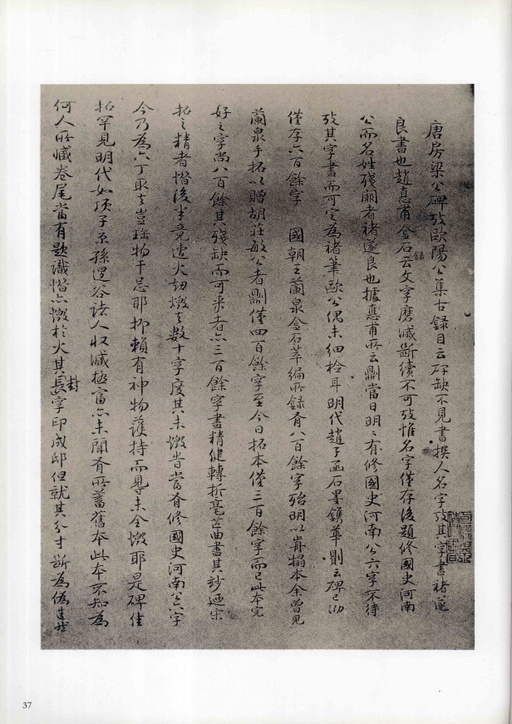 唐房梁公碑攷歐陽公集古錄目云碑缺不見書撰人名字攷其字書褚遂
良書也趙惠甫金石云文字磨滅斷續不可攷惟名字僅存後題修國史河南
公而名姓殘闕者褚遂良也據惠甫所云則當日明明有修國史河南公六字不待
攷其字書而可定為褚筆歐公偶未細檢耳明代趙子函石墨鐫華則云碑已泐
僅存六百餘字 國朝王蘭泉金石萃編所錄有八百餘字殆明以前搨本余曾見
蘭泉手拓以贈胡莊敏公者則僅四百餘字至今日拓本僅三百餘字而已此本完
好之字尚八百餘其八殘缺而可采者亦三百餘字書精健轉折毫芒曲書其妙迺宋
拓之精者惜後半竟遭火劫燬之數十字度其未燬者當有修國史河南公六字
今乃為六丁取去豈珍物干忌耶抑賴有神物護持而得未全燬耶是碑佳
拓罕見明代如項子京孫退谷諸人收藏極富亦未聞有所蓄舊本此本不知為
何人所藏卷尾當有題識惜亦燬於火其長字印成邸但就其分寸斷為偽造然
封